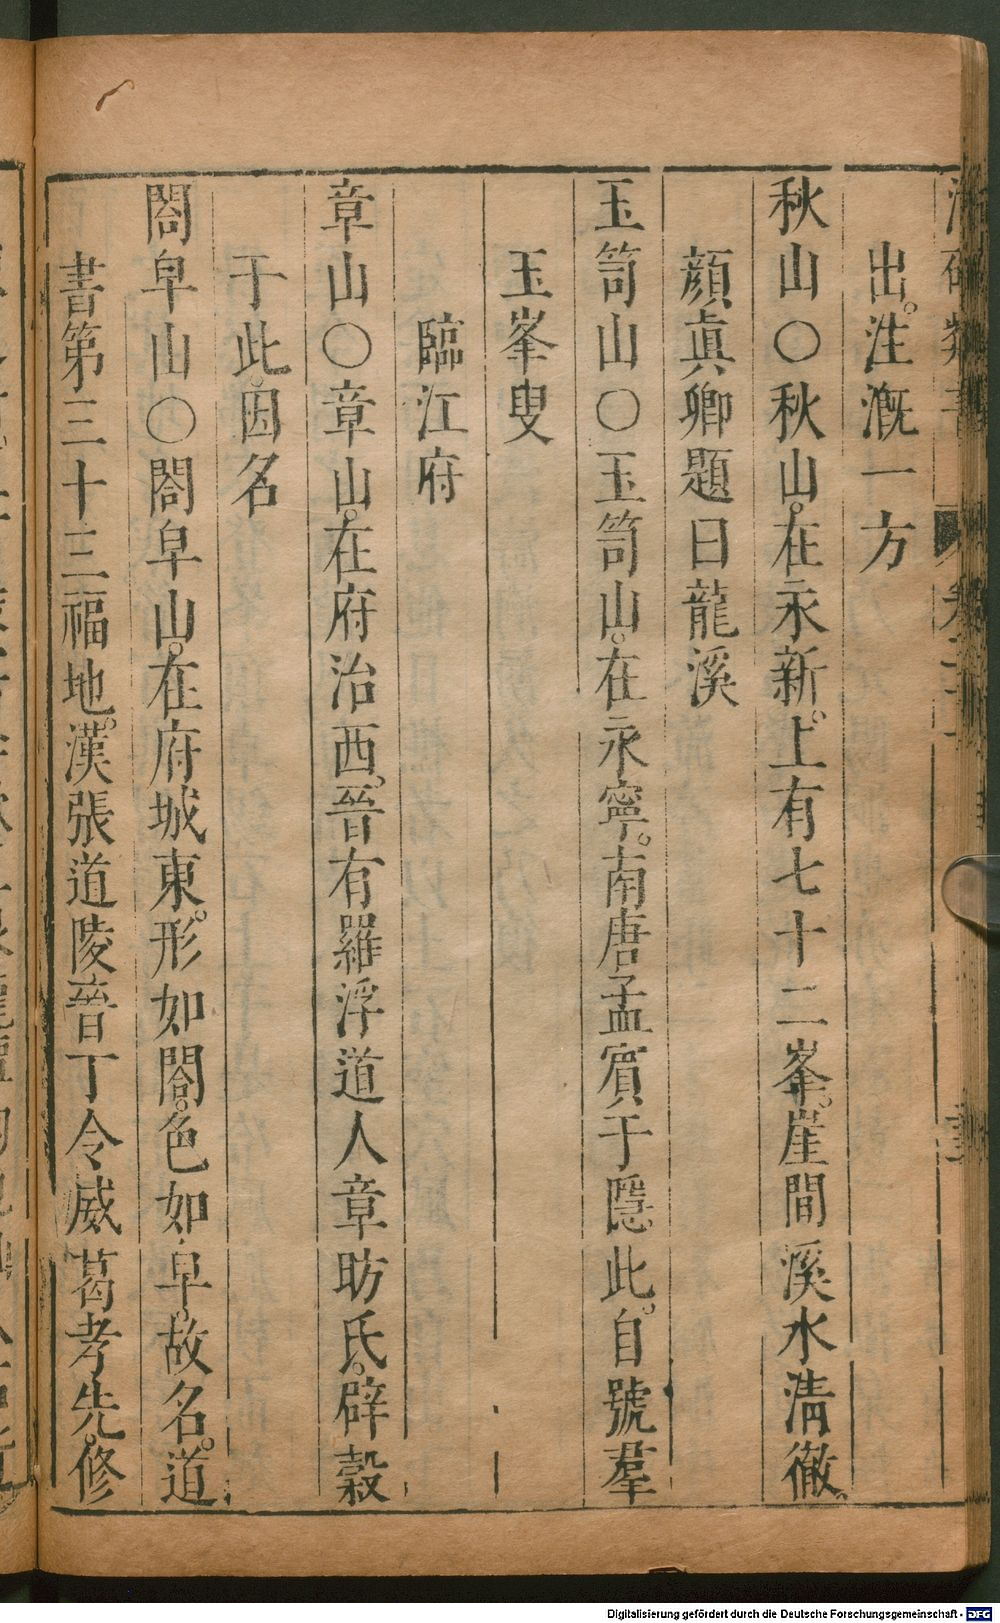 出。注溉一方
秋山〇秋山。在永新。上有七十二峯。崖間溪水清徹。
顔眞卿題曰龍溪
玉笥山〇玉笥山。在永寧。南唐孟賓于隱此。自號羣
玉峯叟
臨江府
章山〇章山。在府治西。晉有羅浮道人章昉氏。辟穀
于此。因名
閤皁山〇閤皁山。在府城東。形如閤。色如皁。故名。道
書第三十三福地。漢張道陵晉丁令威葛孝先。修
Digitalisierung gefördert durch die Deutsche Forschungsgemeinschaft - DFG